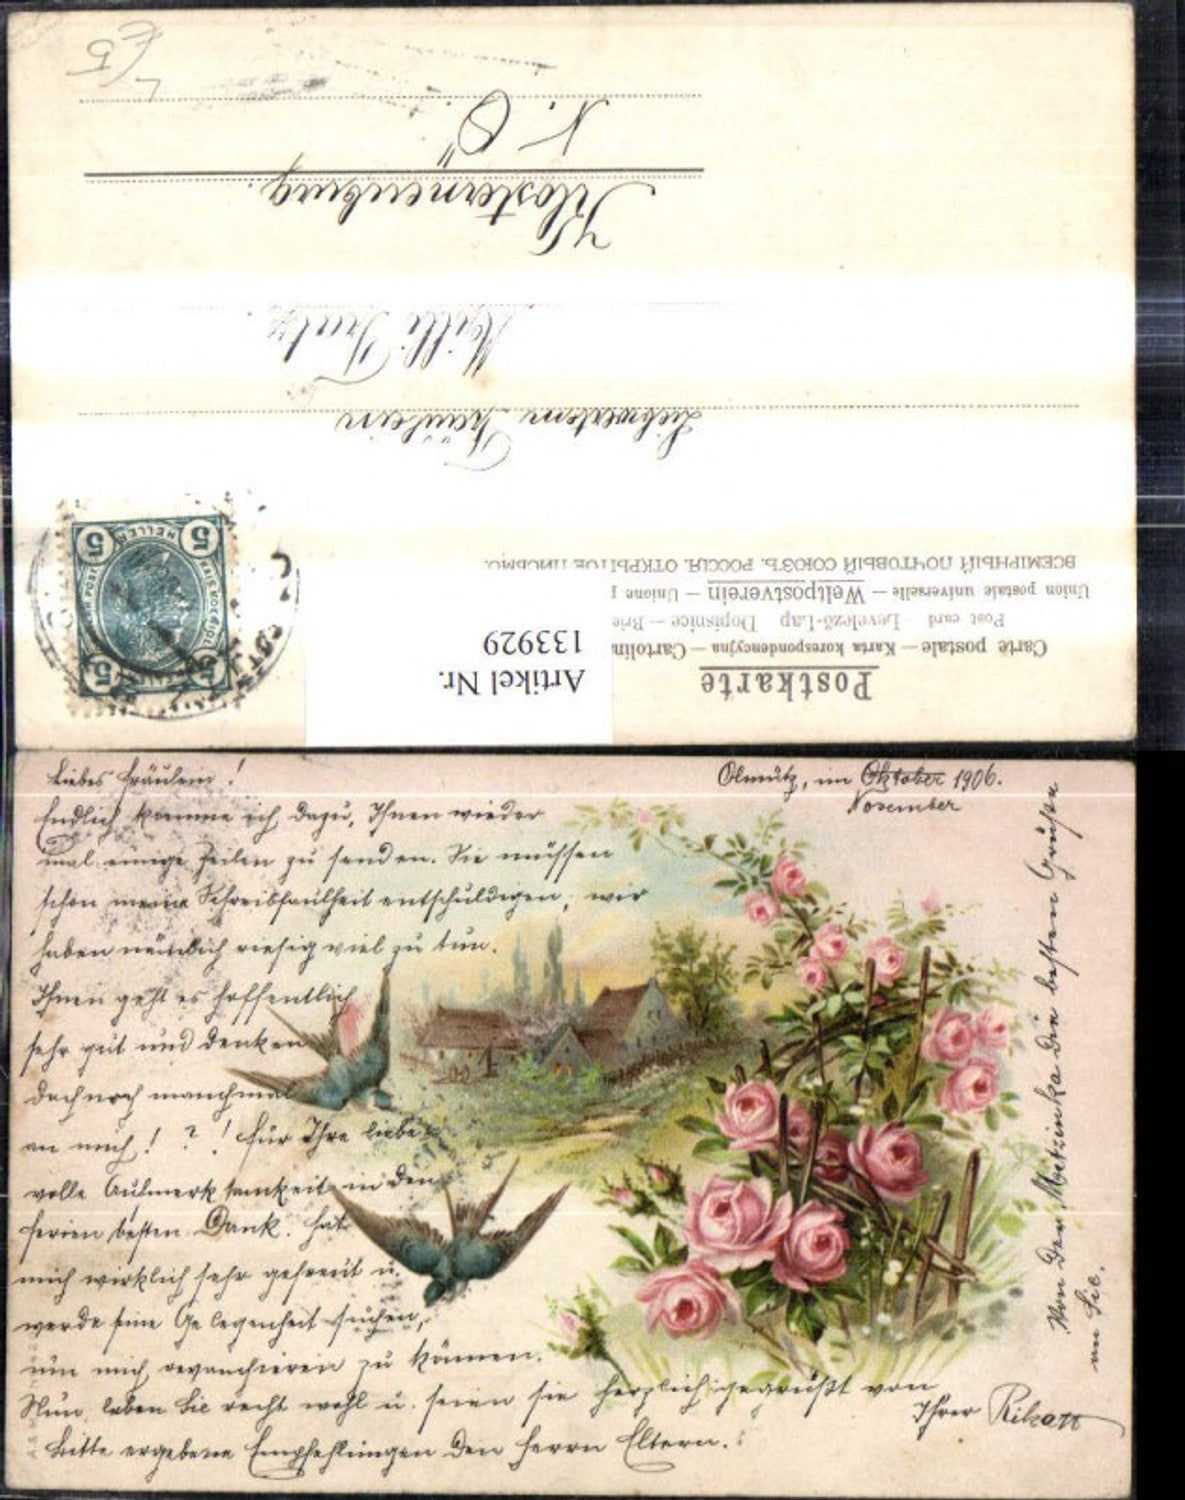 Postkarte
Carte postale — Karta korespondencyjna — Cartolin
Post card — Levelező-Lap — Dopisnice — Brie
Union postale universelle — Weltpostverein — Unione p
ВСЕМІРНЫЙ ПОЧТОВЫЙ СОЮЗЪ. РОССІЯ. ОТКРЫТОЕ ПИСЬМО.
Artikel Nr.
133929
5 HELLER 5
5 5
Fräulein
Milli
Klosterneuburg.
N. Ö.
Olmütz, im Oktober 1906.
November
Liebes Fräulein!
Endlich komme ich dazu, Ihnen wieder
mal einige Zeilen zu senden. Sie müssen
schon meine Schreibfaulheit entschuldigen, wir
haben nämlich riesig viel zu tun.
Ihnen geht es hoffentlich
sehr gut und denken
doch noch manchmal
an mich! ? ! Für Ihre liebe
volle Aufmerksamkeit in den
Ferien besten Dank. Hat
mich wirklich sehr gefreut u.
werde eine Gelegenheit suchen,
um mich revanchieren zu können.
Nun leben Sie recht wohl u. seien sie herzlich gegrüßt von
Ihrer
Bitte ergebene Empfehlungen den Herrn Eltern.
Von der die besten Grüße
an Sie.